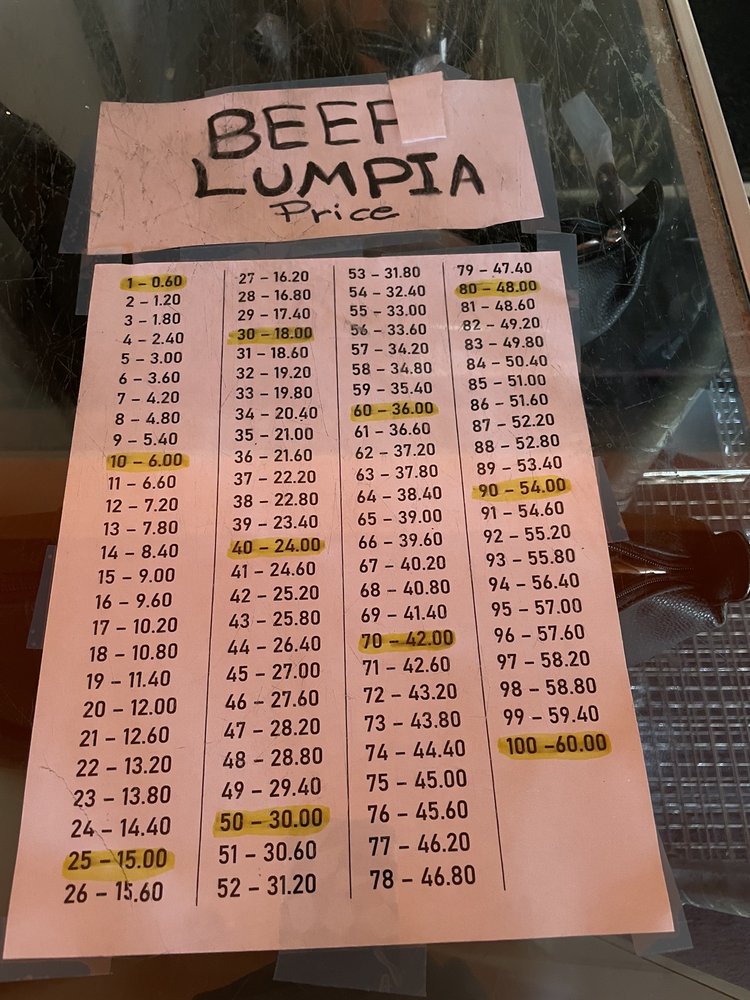 BEEF
LUMPIA
Price
1 – 0.60
2 – 1.20
3 – 1.80
4 – 2.40
5 – 3.00
6 – 3.60
7 – 4.20
8 – 4.80
9 – 5.40
10 – 6.00
11 – 6.60
12 – 7.20
13 – 7.80
14 – 8.40
15 – 9.00
16 – 9.60
17 – 10.20
18 – 10.80
19 – 11.40
20 – 12.00
21 – 12.60
22 – 13.20
23 – 13.80
24 – 14.40
25 – 15.00
26 – 15.60
27 – 16.20
28 – 16.80
29 – 17.40
30 – 18.00
31 – 18.60
32 – 19.20
33 – 19.80
34 – 20.40
35 – 21.00
36 – 21.60
37 – 22.20
38 – 22.80
39 – 23.40
40 – 24.00
41 – 24.60
42 – 25.20
43 – 25.80
44 – 26.40
45 – 27.00
46 – 27.60
47 – 28.20
48 – 28.80
49 – 29.40
50 – 30.00
51 – 30.60
52 – 31.20
53 – 31.80
54 – 32.40
55 – 33.00
56 – 33.60
57 – 34.20
58 – 34.80
59 – 35.40
60 – 36.00
61 – 36.60
62 – 37.20
63 – 37.80
64 – 38.40
65 – 39.00
66 – 39.60
67 – 40.20
68 – 40.80
69 – 41.40
70 – 42.00
71 – 42.60
72 – 43.20
73 – 43.80
74 – 44.40
75 – 45.00
76 – 45.60
77 – 46.20
78 – 46.80
79 – 47.40
80 – 48.00
81 – 48.60
82 – 49.20
83 – 49.80
84 – 50.40
85 – 51.00
86 – 51.60
87 – 52.20
88 – 52.80
89 – 53.40
90 – 54.00
91 – 54.60
92 – 55.20
93 – 55.80
94 – 56.40
95 – 57.00
96 – 57.60
97 – 58.20
98 – 58.80
99 – 59.40
100 –60.00